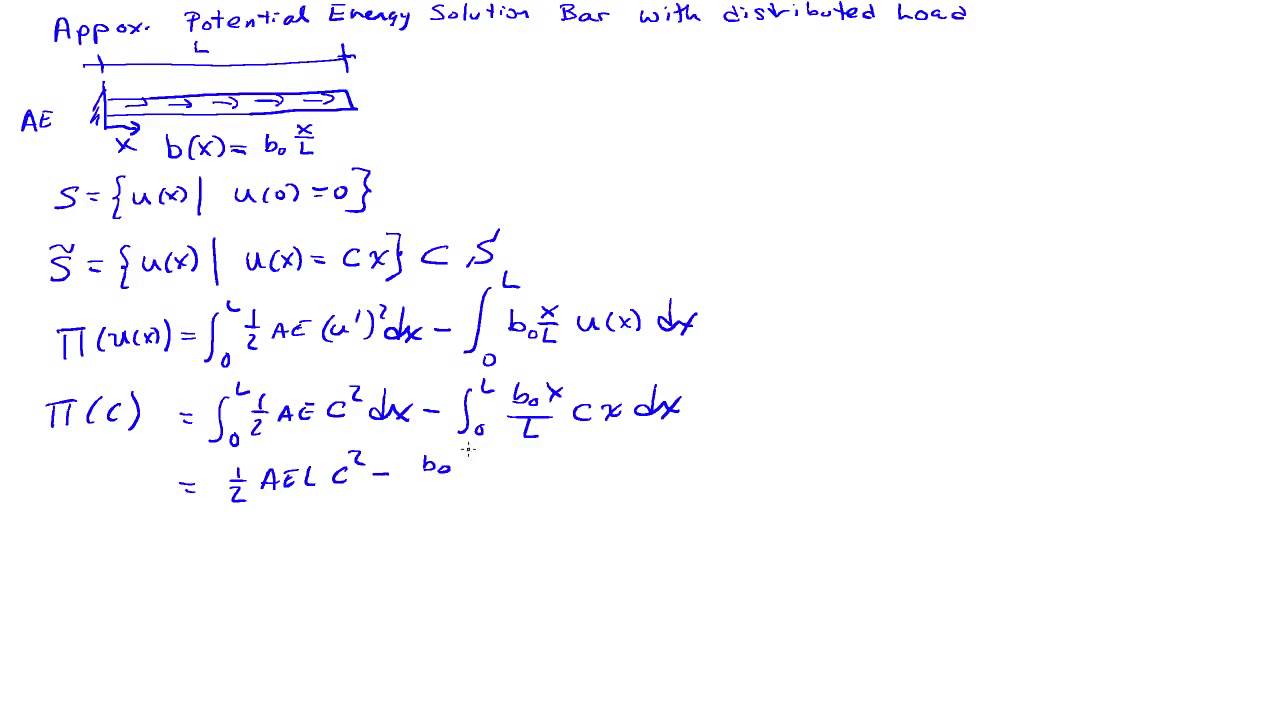 Appox. Potential Energy Solution Bar with distributed Load
L
AE
x b(x) = b₀ x/L
S = {u(x) | u(0) = 0}
S̃ = {u(x) | u(x) = c x} ⊂ S
Π(u(x)) = ∫₀ᴸ 1/2 AE (u')² dx − ∫₀ᴸ b₀ x/L u(x) dx
Π(c) = ∫₀ᴸ 1/2 AE c² dx − ∫₀ᴸ b₀x/L c x dx
= 1/2 AEL c² − b₀